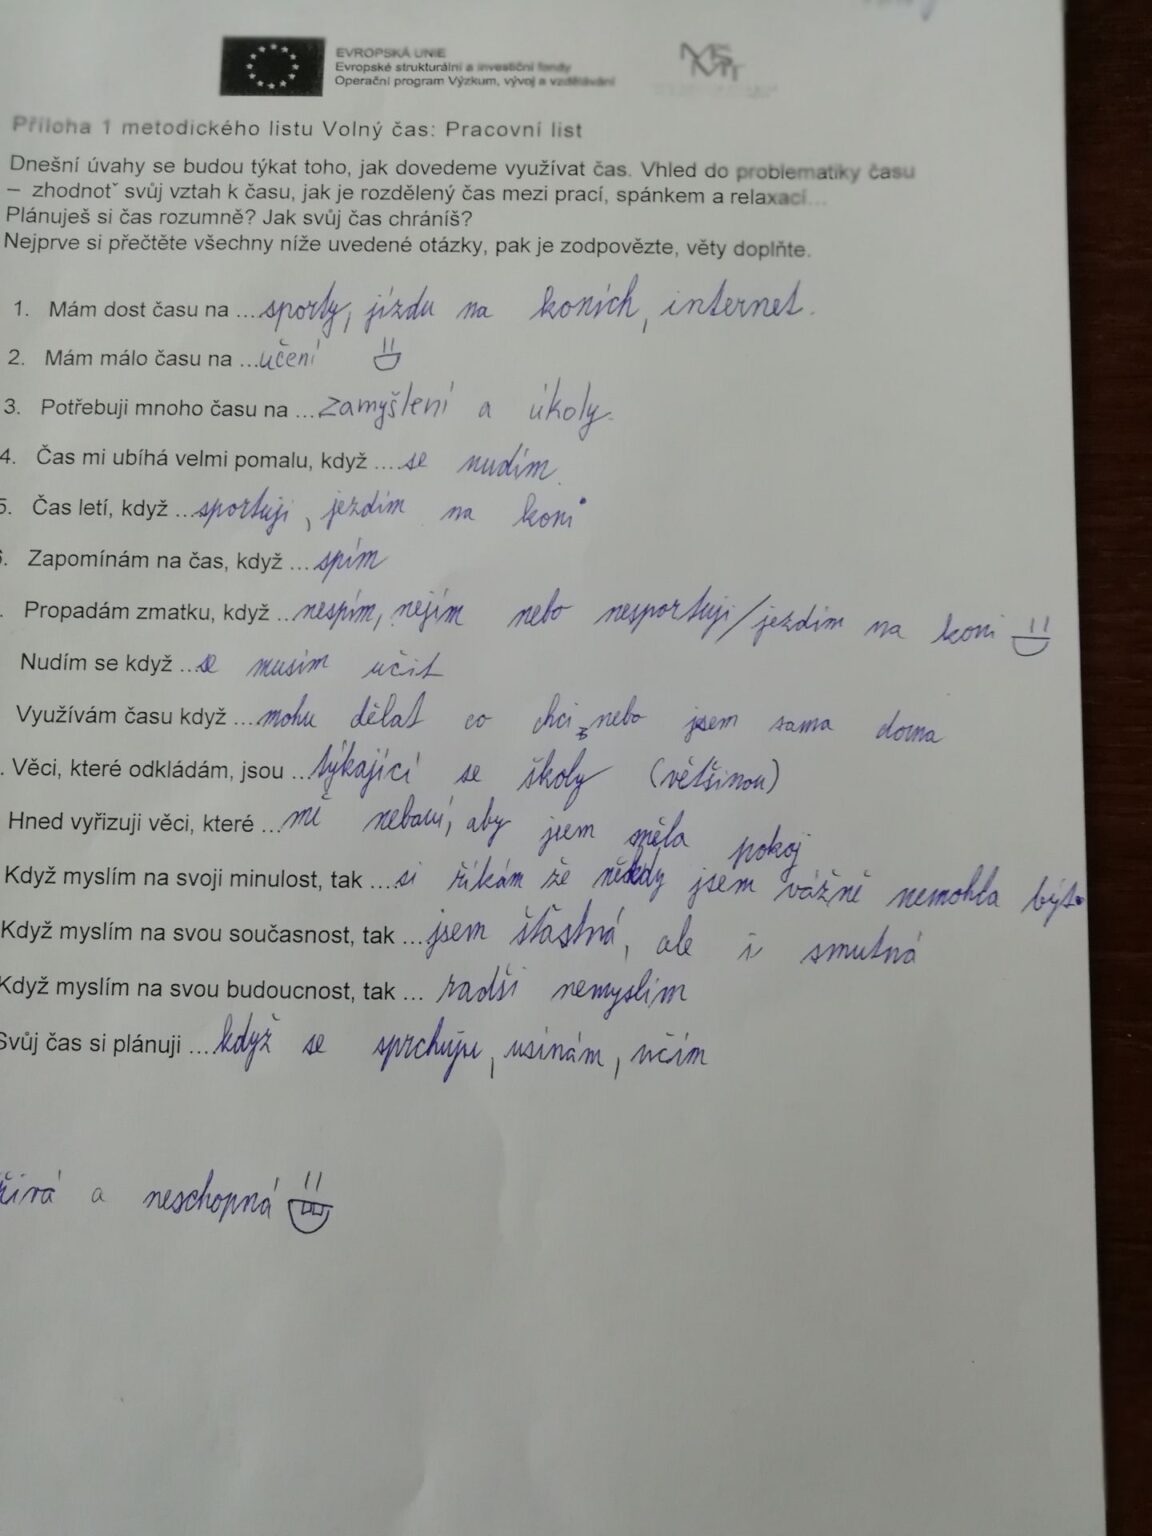 EVROPSKÁ UNIE
Evropské strukturální a investiční fondy
Operační program Výzkum, vývoj a vzdělávání
Příloha 1 metodického listu Volný čas: Pracovní list
Dnešní úvahy se budou týkat toho, jak dovedeme využívat čas. Vhled do problematiky času
– zhodnotˇ svůj vztah k času, jak je rozdělený čas mezi prací, spánkem a relaxací...
Plánuješ si čas rozumně? Jak svůj čas chráníš?
Nejprve si přečtěte všechny níže uvedené otázky, pak je zodpovězte, věty doplňte.
1. Mám dost času na ...sporty, jízdu na koních, internet.
2. Mám málo času na ...učení
3. Potřebuji mnoho času na ...zamyšlení a úkoly.
4. Čas mi ubíhá velmi pomalu, když ....se nudím.
5. Čas letí, když ...sportuji, jezdím na koni
. Zapomínám na čas, když ...spím
. Propadám zmatku, když ...nespím, nejím nebo nesportuji/jezdím na koni
Nudím se když ...se musím učit
Využívám času když ...mohu dělat co chci, nebo jsem sama doma
. Věci, které odkládám, jsou ...týkající se školy (většinou)
Hned vyřizuji věci, které ...mě nebaví, aby jsem měla pokoj
Když myslím na svoji minulost, tak ....si říkám že někdy jsem vážně nemohla být.
Když myslím na svou současnost, tak ...jsem šťastná, ale i smutná
Když myslím na svou budoucnost, tak ... radši nemyslim
Svůj čas si plánuji ...když se sprchuju, usínám, učím
a neschopná